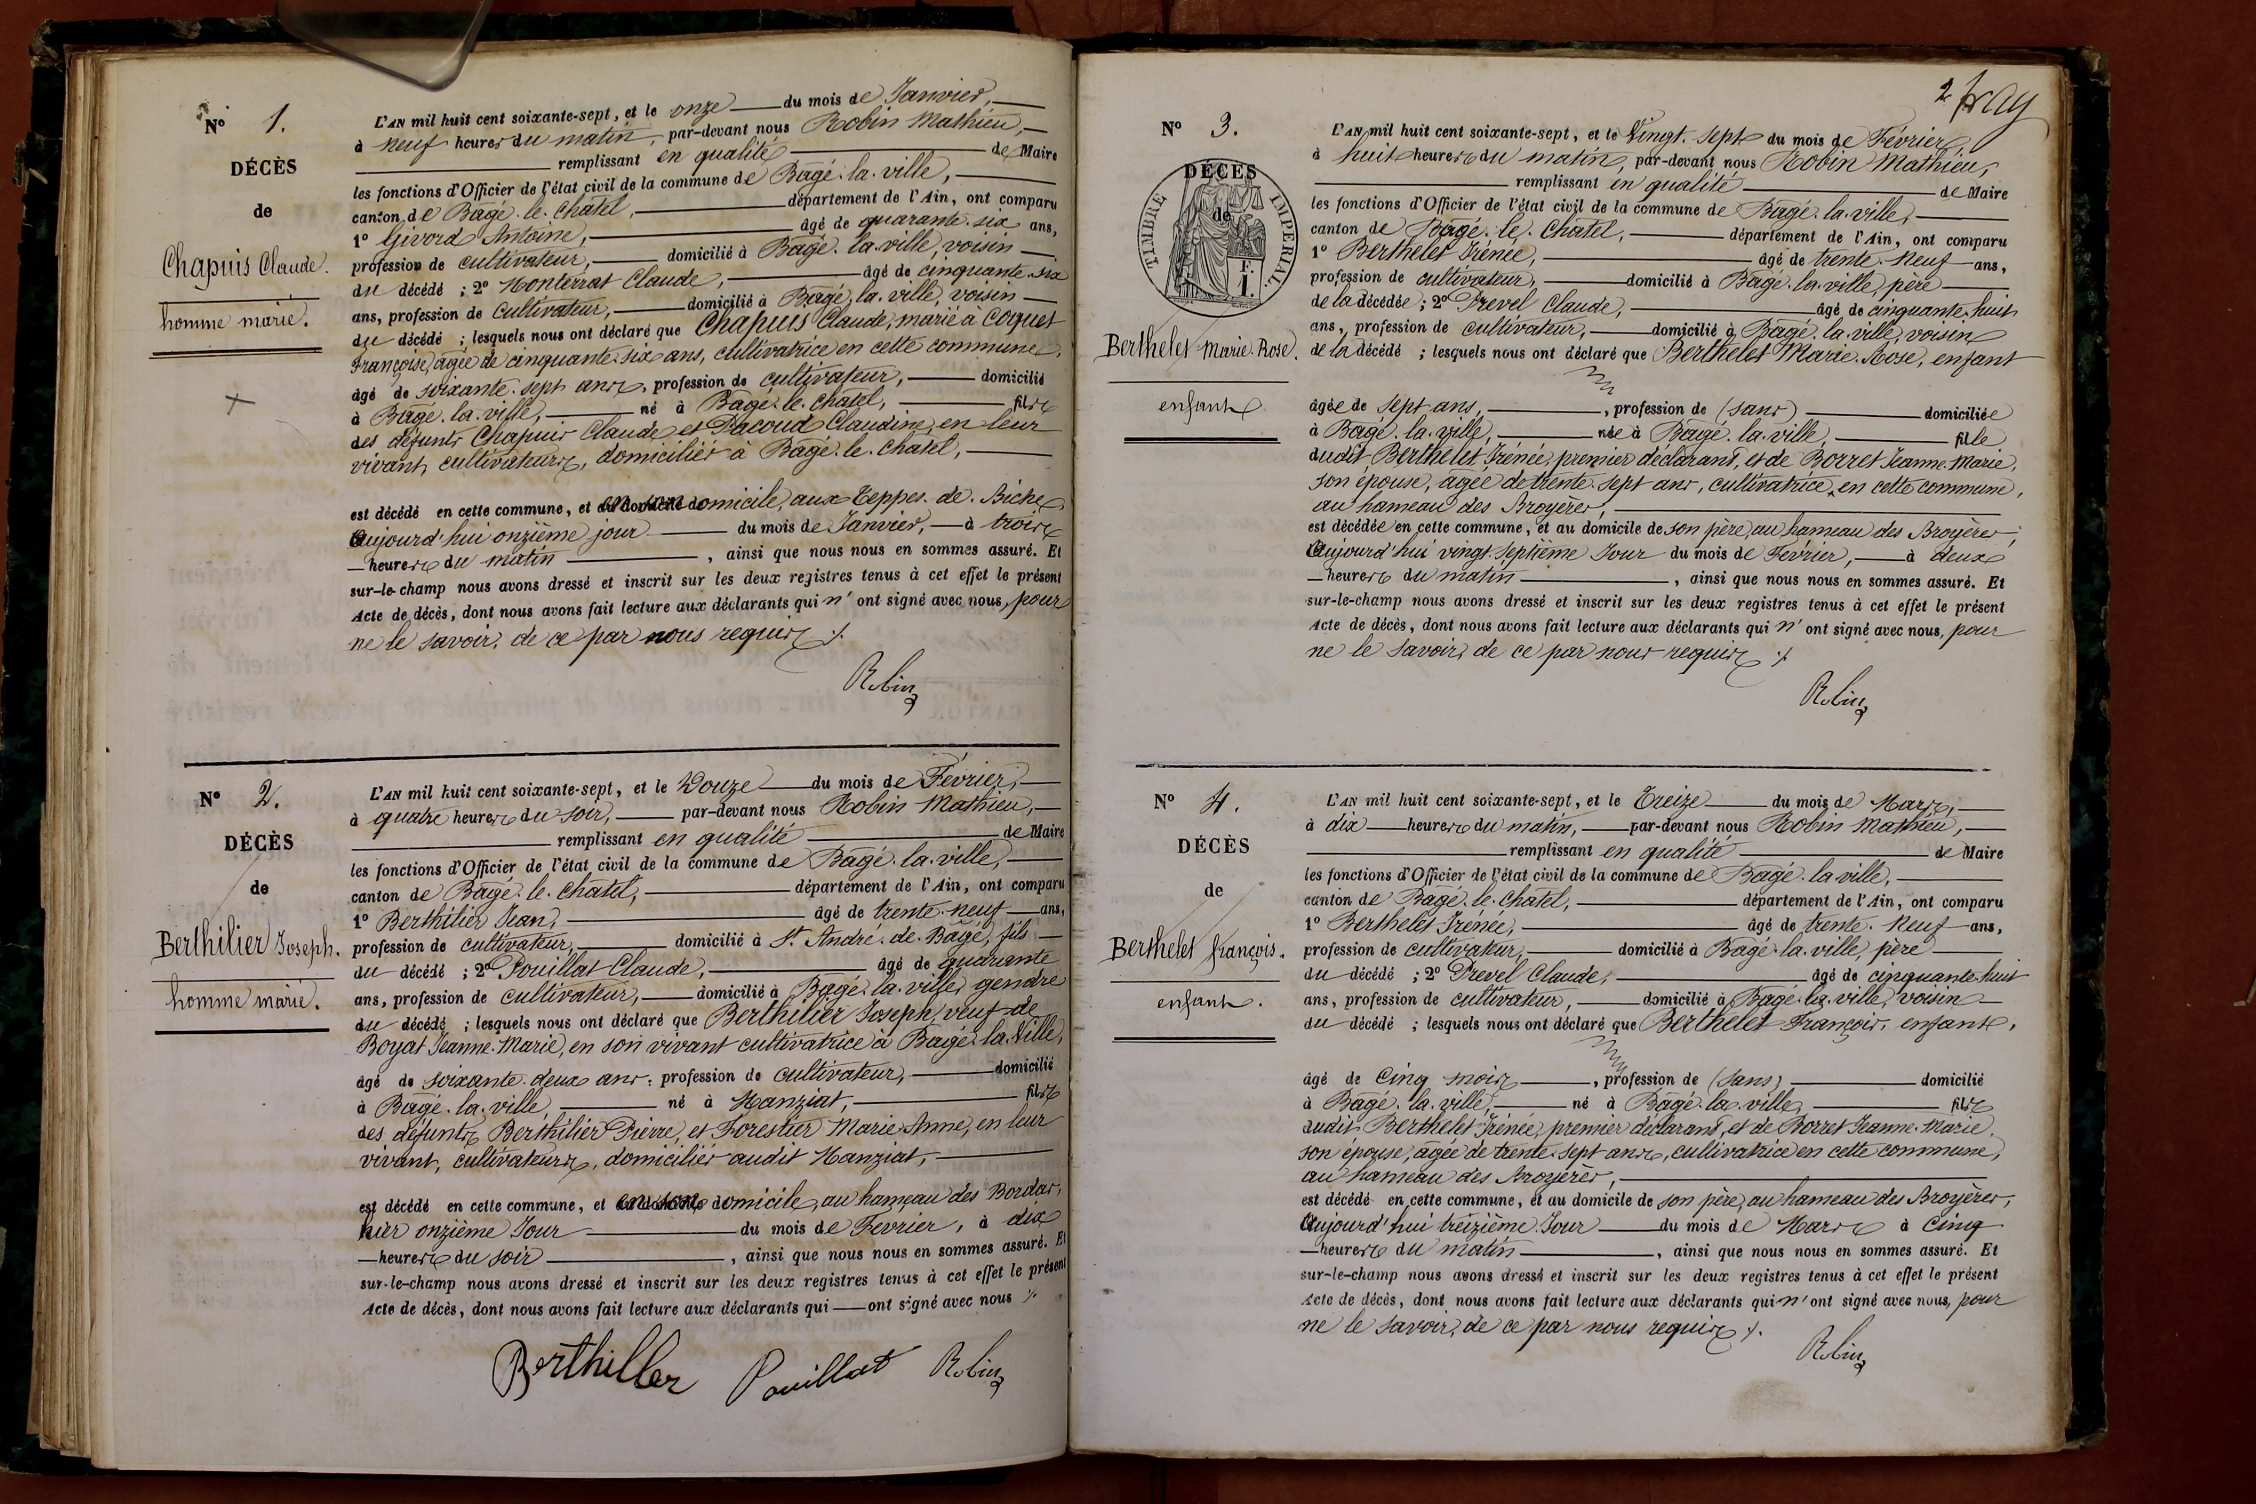 N° 1.
DÉCÈS
de
Chapuis Claude.
homme marié.
L'AN mil huit cent soixante-sept, et le onze du mois de Janvier,
à neuf heures du matin, par-devant nous Robin Mathieu,
remplissant en qualité de Maire
les fonctions d'Officier de l'état civil de la commune de Bagé-la-ville,
canton de Bagé-le-Châtel, département de l'Ain, ont comparu
1° Givord Antoine, âgé de quarante-six ans,
profession de cultivateur, domicilié à Bagé-la-ville, voisin
du décédé ; 2° Monterrat Claude, âgé de cinquante-six
ans, profession de cultivateur, domicilié à Bagé-la-ville, voisin
du décédé ; lesquels nous ont déclaré que Chapuis Claude, marié à Coquet
Françoise, âgée de cinquante-six ans, cultivatrice en cette commune,
âgé de soixante-sept ans, profession de cultivateur, domicilié
à Bagé-la-ville, né à Bagé-le-Châtel, fils
des défunts Chapuis Claude et Pacoud Claudine, en leur
vivant, cultivateurs, domiciliés à Bagé-le-Chatel,
est décédé en cette commune, et en son domicile, aux Teppes-de-Biche,
Aujourd'hui onzième jour du mois de Janvier, à trois
heures du matin, ainsi que nous nous en sommes assuré. Et
sur-le-champ nous avons dressé et inscrit sur les deux registres tenus à cet effet le présent
Acte de décès, dont nous avons fait lecture aux déclarants qui n'ont signé avec nous, pour
ne le savoir, de ce par nous requis
Robin
N° 2.
DÉCÈS
de
Berthilier Joseph.
homme marié.
L'AN mil huit cent soixante-sept, et le Douze du mois de Février,
à quatre heures du soir, par-devant nous Robin Mathieu,
remplissant en qualité de Maire
les fonctions d'Officier de l'état civil de la commune de Bagé-la-ville,
canton de Bagé-le-Châtel, département de l'Ain, ont comparu
1° Berthilier Jean, âgé de trente-neuf ans,
profession de cultivateur, domicilié à St André-de-Bagé, fils
du décédé ; 2° Pouillat Claude, âgé de quarante
ans, profession de cultivateur, domicilié à Bagé-la-ville, gendre
du décédé ; lesquels nous ont déclaré que Berthilier Joseph, veuf de
Boyat Jeanne-Marie, en son vivant cultivatrice à Bagé-la-Ville,
âgé de soixante-deux ans, profession de cultivateur, domicilié
à Bagé-la-ville, né à Manziat, fils
des défunts Berthilier Pierre, et Forestier Marie-Anne, en leur
vivant, cultivateurs, domiciliés audit Manziat,
est décédé en cette commune, et en son domicile, au hameau des Bordas,
hier onzième Jour du mois de Février, à dix
heures du soir, ainsi que nous nous en sommes assuré. Et
sur-le-champ nous avons dressé et inscrit sur les deux registres tenus à cet effet le présent
Acte de décès, dont nous avons fait lecture aux déclarants qui ont signé avec nous
Berthillier Pouillat Robin
2
N° 3.
DÉCÈS
de
TIMBRE IMPÉRIAL
F. 1.
Berthelet Marie-Rose.
enfant
L'AN mil huit cent soixante-sept, et le Vingt-sept du mois de Février,
à huit heures du matin, par-devant nous Robin Mathieu,
remplissant en qualité de Maire
les fonctions d'Officier de l'état civil de la commune de Bagé-la-ville,
canton de Bagé-le-Chatel, département de l'Ain, ont comparu
1° Berthelet Irénée, âgé de trente-neuf ans,
profession de cultivateur, domicilié à Bagé-la-ville, père
de la décédée ; 2° Prevel Claude, âgé de cinquante-huit
ans, profession de cultivateur, domicilié à Bagé-la-ville, voisin
de la décédé ; lesquels nous ont déclaré que Berthelet Marie-Rose, enfant
âgée de sept ans, profession de (sans) domiciliée
à Bagé-la-ville, née à Bagé-la-ville, fille
dudit Berthelet Irénée, premier déclarant, et de Borret Jeanne-Marie,
son épouse, âgée de trente-sept ans, cultivatrice, en cette commune,
au hameau des Broyères,
est décédée en cette commune, et au domicile de son père, au hameau des Broyères,
Aujourd'hui vingt-septième Jour du mois de Février, à deux
heures du matin, ainsi que nous nous en sommes assuré. Et
sur-le-champ nous avons dressé et inscrit sur les deux registres tenus à cet effet le présent
Acte de décès, dont nous avons fait lecture aux déclarants qui n'ont signé avec nous, pour
ne le savoir, de ce par nous requis
Robin
N° 4.
DÉCÈS
de
Berthelet françois.
enfant.
L'AN mil huit cent soixante-sept, et le Treize du mois de Mars,
à dix heures du matin, par-devant nous Robin Mathieu,
remplissant en qualité de Maire
les fonctions d'Officier de l'état civil de la commune de Bagé-la-ville,
canton de Bagé-le-Chatel, département de l'Ain, ont comparu
1° Berthelet Irénée, âgé de trente-neuf ans,
profession de cultivateur, domicilié à Bagé-la-ville, père
du décédé ; 2° Prevel Claude, âgé de cinquante-huit
ans, profession de cultivateur, domicilié à Bagé-la-ville, voisin
du décédé ; lesquels nous ont déclaré que Berthelet François, enfant,
âgé de Cinq mois, profession de (sans) domicilié
à Bagé-la-ville, né à Bagé-la-ville, fils
dudit Berthelet Irénée, premier déclarant, et de Borret Jeanne-Marie,
son épouse, âgée de trente-sept ans, cultivatrice en cette commune,
au hameau des Broyères,
est décédé en cette commune, et au domicile de son père, au hameau des Broyères,
Aujourd'hui treizième Jour du mois de Mars à Cinq
heures du matin, ainsi que nous nous en sommes assuré. Et
sur-le-champ nous avons dressé et inscrit sur les deux registres tenus à cet effet le présent
Acte de décès, dont nous avons fait lecture aux déclarants qui n'ont signé avec nous, pour
ne le savoir, de ce par nous requis
Robin